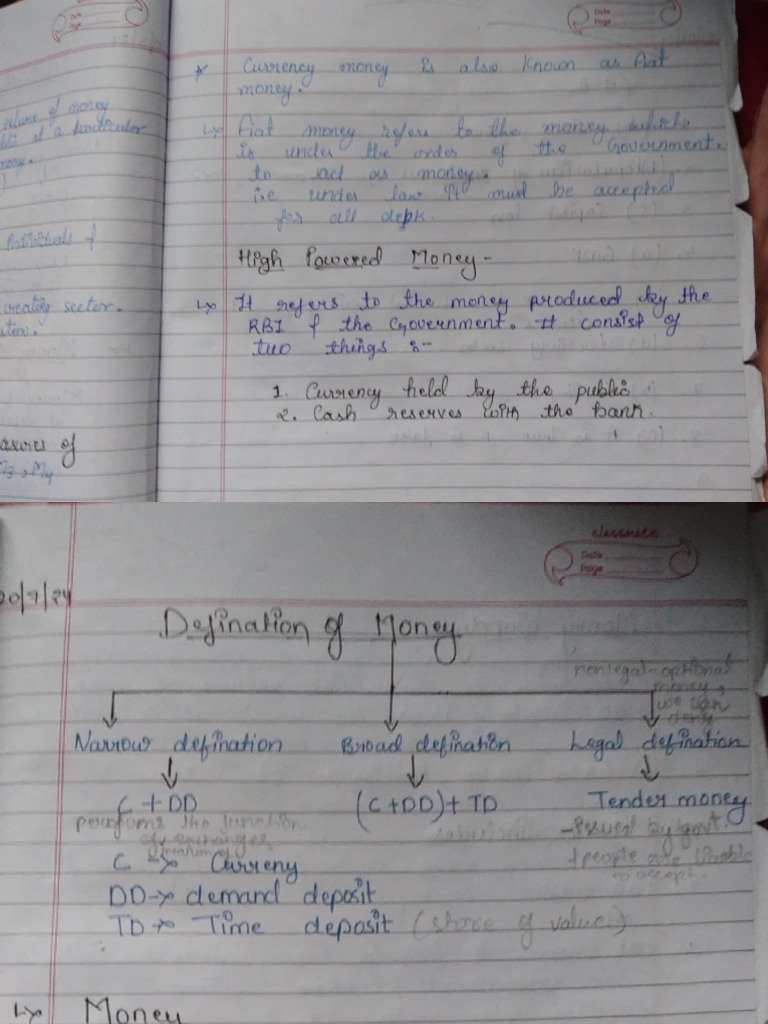 Date
Page
Date
Page
volume of money
at a particular
Individuals &
creating sector.
of
M4
* Currency money is also known as fiat
money.
↳ fiat money refers to the money which
is under the order of the Government.
to act as money.
i.e under law it must be accepted
for all depts.
High Powered Money -
↳ It refers to the money produced by the
RBI & the Government. It consist of
two things :-
1. Currency held by the public
2. Cash reserves with the bank.
classmate
Date
Page
20/7/24
Defination of Money
nonlegal-optional
money,
we can
deny
Narrow defination Broad defination Legal defination
C + DD (C + DD) + TD Tender money
performs the function
of exchange
medium of
- Issued by govt.
& people are liable
to accept.
C → Curreny
DD → demand deposit
TD → Time deposit (store of value)
↳ Money